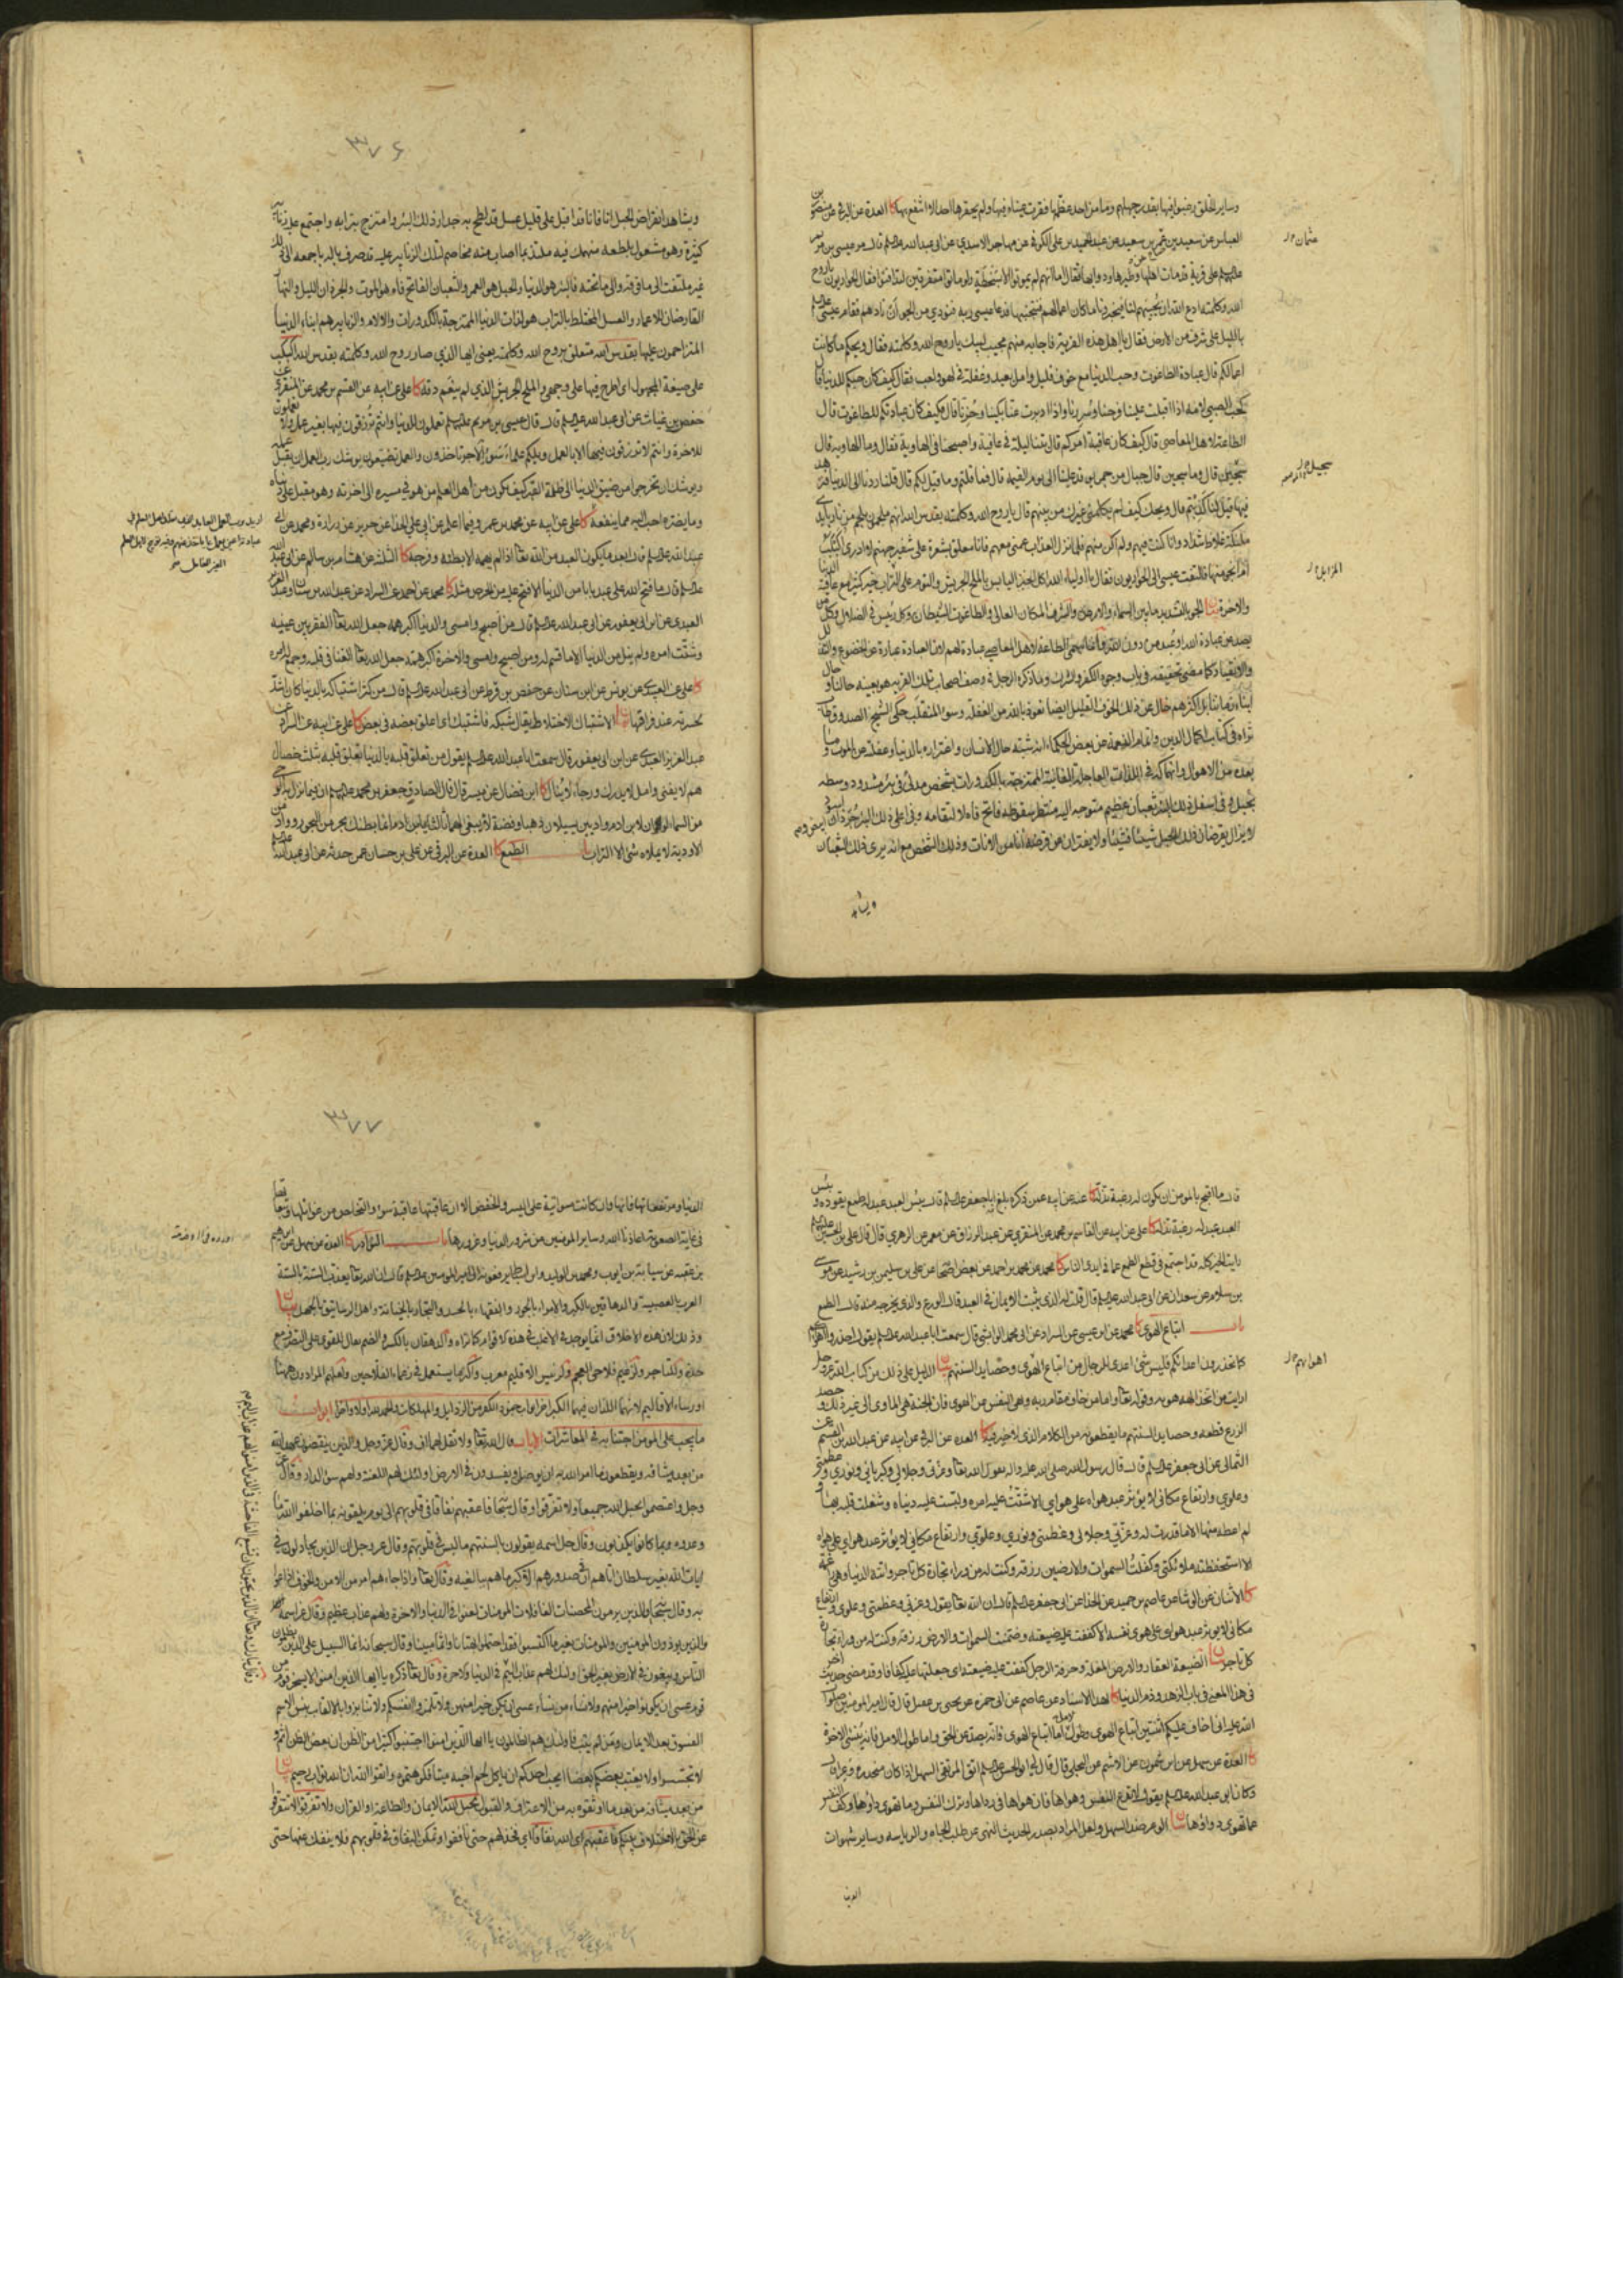 وساير الخلق رضوا فيها بقدر جهلهم وما من احد عظمها فقرت عيناه فيها ولم يحقرها احد الا انتفع بها كا العدة عن البرقي عن منصور بن
العباس عن سعيد بن جناح عن عثمان بن سعيد عن عبد الحميد بن علي الكوفي عن مهاجر الاسدي عن ابي عبد الله عليه السلم قال مر عيسى بن مريم
عليهما السلم على قرية قد مات اهلها وطيرها ودوابها فقال اما انهم لم يموتوا الا بسخطة ولو ماتوا متفرقين لتدافنوا فقال الحواريون يا روح
الله وكلمته ادع الله ان يحييهم لنا فيخبرونا ما كان اعمالهم فنجتنبها فدعا عيسى ربه فنودي من الجو ان نادهم فقام عيسى
بالليل على شرف من الارض فقال يا اهل هذه القرية فاجابه منهم مجيب لبيك يا روح الله وكلمته فقال ويحكم ما كانت
اعمالكم قال عبادة الطاغوت وحب الدنيا مع خوف قليل وامل بعيد وغفلة في لهو ولعب فقال كيف كان حبكم للدنيا قال
كحب الصبي لامه اذا اقبلت علينا فرحنا وسررنا واذا ادبرت عنا بكينا وحزنا قال فكيف كان عبادتكم للطاغوت قال
الطاعة لاهل المعاصي قال كيف كان عاقبة امركم قال بتنا ليلة في عافية واصبحنا في الهاوية فقال وما الهاوية قال
سجين قال وما سجين قال جبال من جمر توقد علينا الى يوم القيمة قال فما قلتم وما قيل لكم قال قلنا ردنا الى الدنيا فنزهد
فيها قيل لنا كذبتم قال ويحك كيف لم يكلمني غيرك من بينهم قال يا روح الله وكلمته بقدس الله انهم ملجمون بلجم من نار بايدي
ملئكة غلاظ شداد وانا كنت فيهم ولم اكن منهم فلما نزل العذاب عمني معهم فانا معلق بشعرة على شفير جهنم لا ادري اكبكب
ام انجو منها فالتفت عيسى الى الحواريين فقال يا اولياء الله اكل الخبز اليابس بالملح الجريش والنوم على المزابل خير كثير مع عافية الدنيا
والاخرة بيان الجو بالتشديد ما بين السماء والارض والشرف المكان العالي والطاغوت الشيطان وكل رئيس في الضلال وكل من
يصد عن عبادة الله او عبد من دون الله وانما سمى الطاعة لاهل المعاصي عبادة لهم لان العبادة عبارة عن الخضوع والتذلل
والانقياد كما مضى تحقيقه في باب وجوه الكفر والشرك وما ذكره الرجل في وصف اصحاب تلك القرية هو بعينه حالنا وحال
ابناء زماننا بل اكثرهم خال عن ذلك الخوف القليل ايضا نعوذ بالله من الغفلة وسوء المنقلب حكى الشيخ الصدوق طاب
ثراه في كتاب اكمال الدين واتمام النعمة عن بعض الحكماء انه شبه حال الانسان واغتراره بالدنيا وغفلته عن الموت وما
بعده من الاهوال وانهماكه في اللذات العاجلة الفانية الممتزجة بالكدورات بشخص مدلى في بئر مشدود وسطه
بحبل وفي اسفل ذلك البئر ثعبان عظيم متوجه اليه منتظر سقوطه فاتح فاه لالتقامه وفي اعلى ذلك البئر جرذان ابيض واسود
لا يزالان يقرضان ذلك الحبل شيئا فشيئا ولا يفتران عن قرضه انا من الانات وذلك الشخص مع انه يرى ذلك الثعبان
ويشاهد
٣٧٦
ويشاهد انقراض الحبل انا فانا قد اقبل على قليل عسل قد لطخ به جدار ذلك البئر وامتزج بترابه واجتمع عليه زنابير
كثيرة وهو مشغول بلطعه منهمك فيه ملتذ بما اصاب منه مخاصم لتلك الزنابير عليه قد صرف باله باجمعه الى ذلك
غير ملتفت الى ما فوقه والى ما تحته فالبئر هو الدنيا والحبل هو العمر والثعبان الفاتح فاه هو الموت والجرذان الليل والنهار
القارضان للاعمار والعسل المختلط بالتراب هو لذات الدنيا الممتزجة بالكدورات والالام والزنابير هم ابناء الدنيا
المتزاحمون عليها بقدس الله متعلق بروح الله وكلمته يعني ايها الذي صار روح الله وكلمته بقدس الله اكبكب
على صيغة المجهول اي اطرح فيها على وجهي والملح الجريش الذي لم ينعم دقه كا علي عن ابيه عن القسم بن محمد عن المنقري عن
حفص بن غياث عن ابي عبد الله عليه السلم قال قال عيسى بن مريم عليهما السلم تعملون للدنيا وانتم ترزقون فيها بغير عمل ولا تعملون
للاخرة وانتم لا ترزقون فيها الا بالعمل ويلكم علماء سوء الاجر تاخذون والعمل تضيعون يوشك رب العمل ان يقبل عمله
ويوشك ان تخرجوا من ضيق الدنيا الى ظلمة القبر كيف يكون من اهل العلم من هو في مسيره الى اخرته وهو مقبل على دنياه
وما يضره احب اليه مما ينفعه كا علي عن ابيه عن محمد بن عمرو فيما اعلم عن ابي علي الحذاء عن حريز عن زرارة ومحمد عن ابي
عبد الله عليه السلم قال ابعد ما يكون العبد من الله تعالى اذا لم يهمه الا بطنه وفرجه كا الثلثة عن هشام بن سالم عن ابي عبد الله
عليه السلم قال ما فتح الله على عبد بابا من الدنيا الا فتح عليه من الحرص مثله كا محمد عن احمد عن السراد عن عبد الله بن سنان وعبد العزيز
العبدي عن ابن ابي يعفور عن ابي عبد الله عليه السلم قال من اصبح وامسى والدنيا اكبر همه جعل الله تعالى الفقر بين عينيه
وشتت امره ولم ينل من الدنيا الا ما قسم له ومن اصبح وامسى والاخرة اكبر همه جعل الله تعالى الغنا في قلبه وجمع له امره
كا علي عن العبيدي عن يونس عن ابن سنان عن حفص بن قرط عن ابي عبد الله عليه السلم قال من كثر اشتباكه بالدنيا كان اشد
لحسرته عند فراقها بيان الاشتباك الاختلاط يقال شبكه فاشتبك اي اعلق بعضه في بعض كا علي عن ابيه عن السراد عن
عبد العزيز العبدي عن ابن ابي يعفور قال سمعت ابا عبد الله عليه السلم يقول من تعلق قلبه بالدنيا تعلق قلبه بثلث خصال
هم لا يفنى وامل لا يدرك ورجاء لا ينال كا ابن فضال عن ميسر قال قال الصادق جعفر بن محمد عليهما السلم ان فيما نزل به الوحي
من السماء لو ان لابن ادم واديين يسيلان ذهبا وفضة لابتغى لهما ثالثا يا ابن ادم انما بطنك بحر من البحور وواد من
الاودية لا يملاه شئ الا التراب باب الطمع كا العدة عن البرقي عن علي بن حسان عمن حدثه عن ابي عبد الله عليه السلم
قال ما اقبح بالمومن ان يكون له رغبة تذله كا عنه عن ابيه عمن ذكره بلغ به ابا جعفر عليه السلم قال بئس العبد عبد له طمع يقوده وبئس
العبد عبد له رغبة تذله كا علي عن ابيه عن القاسم بن محمد عن المنقري عن عبد الرزاق عن معمر عن الزهري قال قال علي بن الحسين عليهما السلم
رايت الخير كله قد اجتمع في قطع الطمع عما في ايدي الناس كا محمد عن محمد بن احمد عن بعض اصحابنا عن علي بن سليمن بن رشيد عن موسى
بن سلام عن سعدان عن ابي عبد الله عليه السلم قال قلت له الذي يثبت الايمان في العبد قال الورع والذي يخرجه منه قال الطمع
باب اتباع الهوى كا محمد عن ابن عيسى عن السراد عن ابي محمد الوابشي قال سمعت ابا عبد الله عليه السلم يقول احذروا اهواءكم
كما تحذرون اعداءكم فليس شئ اعدى للرجال من اتباع الهوى وحصايد السنتهم بيان الدليل على ذلك من كتاب الله عز وجل
ارايت من اتخذ الهه هويه وقوله تعالى واما من خاف مقام ربه ونهى النفس عن الهوى فان الجنة هي الماوى الى غير ذلك وحصد
الزرع قطعه وحصايد السنتهم ما يقطعونه من الكلام الذي لا خير فيه كا العدة عن البرقي عن ابيه عن عبد الله بن القسم عن
الثمالي عن ابي جعفر عليه السلم قال قال رسول الله صلى الله عليه واله يقول الله تعالى وعزتي وجلالي وكبريائي ونوري وعظمتي
وعلوي وارتفاع مكاني لا يؤثر عبد هواه على هواي الا شتت عليه امره ولبست عليه دنياه وشغلت قلبه بها و
لم اعطه منها الا ما قدرت له وعزتي وجلالي وعظمتي ونوري وعلوي وارتفاع مكاني لا يؤثر عبد هواي على هواه
الا استحفظته ملائكتي وكفلت السموات والارضين رزقه وكنت له من وراء تجارة كل تاجر واتته الدنيا وهي راغمة
كا الاثنان عن الوشاء عن عاصم بن حميد عن الحذاء عن ابي جعفر عليه السلم قال ان الله تعالى يقول وعزتي وعظمتي وعلوي وارتفاع
مكاني لا يؤثر عبد هواي على هوى نفسه الا كففت عليه ضيعته وضمنت السموات والارض رزقه وكنت له من وراء تجارة
كل تاجر بيان الضيعة العقار والارض المغلة وحرفة الرجل كففت عليه ضيعته اي جعلتها عليه كفافا وقد مضى حديث اخر
في هذا المعنى في باب الزهد وذم الدنيا كا بهذا الاسناد عن عاصم عن ابي حمزه عن يحيى بن عقيل قال قال امير المومنين صلوات
الله عليه انما اخاف عليكم اثنتين اتباع الهوى وطول الامل اما اتباع الهوى فانه يصد عن الحق واما طول الامل فانه ينسي الاخرة
كا العدة عن سهل عن ابن شمون عن الاصم عن البجلي قال قال لي ابو الحسن عليه السلم اتق المرتقى السهل اذا كان منحدره وعرا قال
وكان ابو عبد الله عليه السلم يقول لا تدع النفس وهواها فان هواها في رداها وترك النفس وما تهوى داؤها وكف النفس
عما تهوى دواؤها بيان الوعر ضد السهل ولعل المراد بصدر الحديث النهي عن طلب الجاه والرياسه وساير شهوات
الدنيا
٣٧٧
الدنيا ومرتفعاتها فانها وان كانت مواتية على اليسر والخفض الا ان عاقبتها عاقبة سوء والتخلص من غوائلها وتبعاتها
في غاية الصعوبة اعاذنا الله وساير المومنين من شرور الدنيا وغرورها باب النوادر كا العدة عن سهل عن ابراهيم
بن عقبه عن سيابة بن ايوب ومحمد بن الوليد وابن اسباط يرفعونه الى امير المومنين عليه السلم قال ان الله تعالى يعذب الستة بالستة
العرب بالعصبية والدهاقين بالكبر والامراء بالجور والفقهاء بالحسد والتجار بالخيانة واهل الرساتيق بالجهل بيان
وذلك لان هذه الاخلاق انما يوجد في الاغلب في هذه الاقوام كما تراه والدهقان بالكسر والضم يقال للقوي على التصرف مع
حدة وللتاجر ولزعيم فلاحي العجم ولرئيس الاقليم معرب واكثر ما يستعمل في زعماء الفلاحين ولعلهم المرادون ههنا
او رؤساء الاقاليم لانهما اللذان فيهما الكبر اخر ابواب جنود الكفر من الرذايل والمهلكات والحمد لله اولا واخرا ابواب
ما يجب على المومن اجتنابه في المعاشرات الايات قال الله تعالى ولا تقل لهما اف وقال عز وجل والذين ينقضون عهد الله
من بعد ميثاقه ويقطعون ما امر الله به ان يوصل ويفسدون في الارض اولئك لهم اللعنة ولهم سوء الدار وقال عز
وجل واعتصموا بحبل الله جميعا ولا تفرقوا وقال سبحانه فاعقبهم نفاقا في قلوبهم الى يوم يلقونه بما اخلفوا الله ما
وعدوه وبما كانوا يكذبون وقال جل اسمه يقولون بالسنتهم ما ليس في قلوبهم وقال عز وجل ان الذين يجادلون في
ايات الله بغير سلطان اتاهم ان في صدورهم الا كبر ما هم ببالغيه وقال تعالى واذا جاءهم امر من الامن والخوف اذاعوا
به وقال سبحانه والذين يرمون المحصنات الغافلات المومنات لعنوا في الدنيا والاخرة ولهم عذاب عظيم وقال عز اسمه
والذين يوذون المومنين والمومنات بغير ما اكتسبوا فقد احتملوا بهتانا واثما مبينا وقال سبحانه انما السبيل على الذين يظلمون
الناس ويبغون في الارض بغير الحق اولئك لهم عذاب اليم وقال تعالى ذكره يا ايها الذين امنوا لا يسخر قوم من
قوم عسى ان يكونوا خيرا منهم ولا نساء من نساء عسى ان يكن خيرا منهن ولا تلمزوا انفسكم ولا تنابزوا بالالقاب بئس الاسم
الفسوق بعد الايمان ومن لم يتب فاولئك هم الظالمون يا ايها الذين امنوا اجتنبوا كثيرا من الظن ان بعض الظن اثم و
لا تجسسوا ولا يغتب بعضكم بعضا ايحب احدكم ان ياكل لحم اخيه ميتا فكرهتموه واتقوا الله ان الله تواب رحيم بيان
من بعد ميثاقه من بعد ما اوثقوه به من الاعتراف والقبول بحبل الله الايمان والطاعة او القران ولا تفرقوا لا تتفرقوا
عن الحق بالاختلاف بينكم فاعقبهم اي الله نفاقا اي فخذلهم حتى نافقوا وتمكن النفاق في قلوبهم فلا ينفك عنها حتى